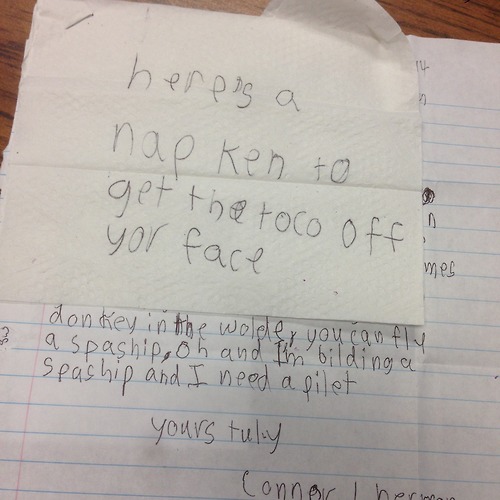 here's a
nap ken to
get the toco off
yor face
14
n
n
mes
donkey in the wolde, you can fly
a spaship, Oh and I'm bilding a
spaship and I need a pilet
yours tuly
Conner